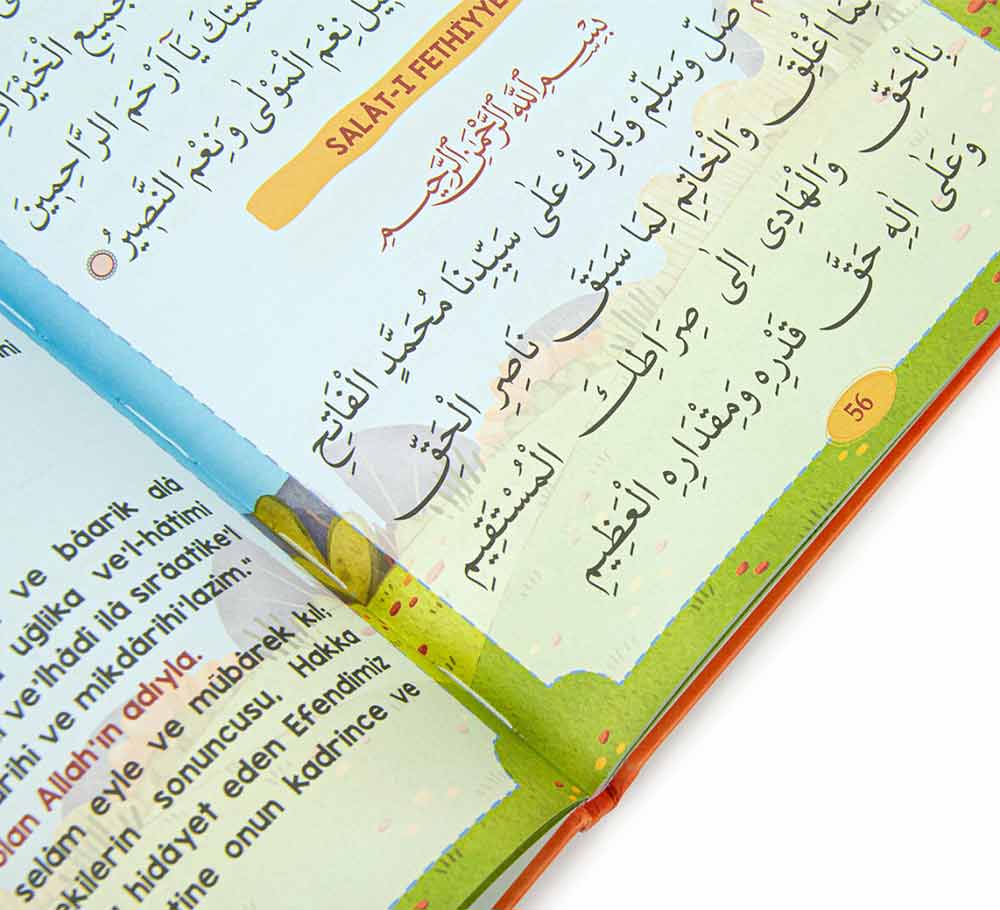 جَمِيعِ الْخَيْرَاتِ
يَآ اَرْحَمَ الرَّاحِمِينَ
نِعْمَ الْمَوْلٰى وَنِعْمَ النَّصٖيرُ
SALÂT-I FETHİYYE
بِسْمِ اللّٰهِ الرَّحْمٰنِ الرَّحٖيمِ
صَلِّ وَسَلِّمْ وَبَارِكْ عَلٰى سَيِّدِنَا مُحَمَّدٍ الْفَاتِحِ
لِمَا اُغْلِقَ وَالْخَاتِمِ لِمَا سَبَقَ نَاصِرِ الْحَقِّ
بِالْحَقِّ وَالْهَادِى اِلٰى صِرَاطِكَ الْمُسْتَقِيمِ
وَعَلٰى اٰلِهِ حَقَّ قَدْرِهِ وَمِقْدَارِهِ الْعَظِيمِ
56
ve bâarik alâ
uğlika ve'l-hâtimi
ve'lhâdi ilâ sırâatike'l
ve mikdârihi'lazim."
olan Allah'ın adıyla.
selâm eyle ve mübârek kıl;
sonuncusu, Hakka
hidâyet eden Efendimiz
onun kadrince ve